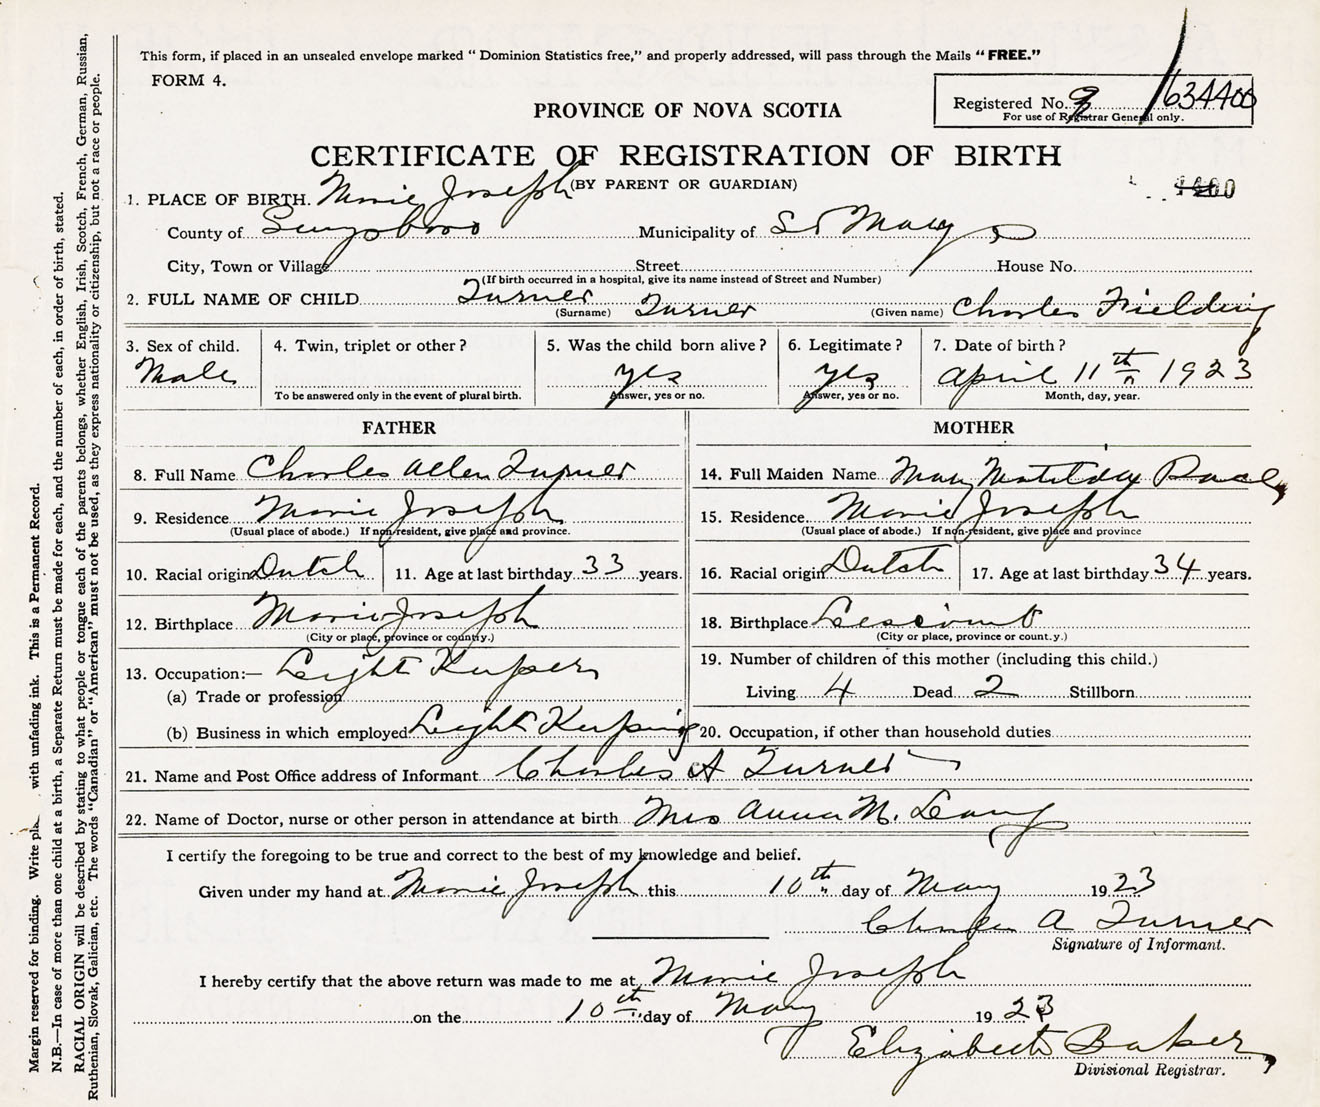 This form, if placed in an unsealed envelope marked " Dominion Statistics free," and properly addressed, will pass through the Mails "FREE."
FORM 4.
Registered No. 9 1634400
For use of Registrar General only.
PROVINCE OF NOVA SCOTIA
CERTIFICATE OF REGISTRATION OF BIRTH
(BY PARENT OR GUARDIAN)
1. PLACE OF BIRTH. Marie Joseph
County of Municipality of St Marys
City, Town or Village Street House No.
(If birth occurred in a hospital, give its name instead of Street and Number)
2. FULL NAME OF CHILD Turner Turner Charles Fielding
(Surname) (Given name)
3. Sex of child. 4. Twin, triplet or other? 5. Was the child born alive? 6. Legitimate? 7. Date of birth?
Male yes yes April 11th 1923
To be answered only in the event of plural birth. Answer, yes or no. Answer, yes or no. Month, day, year.
FATHER
8. Full Name Charles Allen Turner
9. Residence Marie Joseph
(Usual place of abode.) If non-resident, give place and province.
10. Racial origin Dutch 11. Age at last birthday 33 years.
12. Birthplace Marie Joseph
(City or place, province or country.)
13. Occupation:— Light Keeper
(a) Trade or profession
(b) Business in which employed Light Keeping
MOTHER
14. Full Maiden Name Mary Matilda
15. Residence Marie Joseph
(Usual place of abode.) If non-resident, give place and province
16. Racial origin Dutch 17. Age at last birthday 34 years.
18. Birthplace
(City or place, province or count.y.)
19. Number of children of this mother (including this child.)
Living 4 Dead 2 Stillborn
20. Occupation, if other than household duties
21. Name and Post Office address of Informant Charles A Turner
22. Name of Doctor, nurse or other person in attendance at birth Mrs Anna M.
I certify the foregoing to be true and correct to the best of my knowledge and belief.
Given under my hand at Marie Joseph this 10th day of May 1923
Charles A Turner
Signature of Informant.
I hereby certify that the above return was made to me at Marie Joseph
on the 10th day of May 1923
Elizabeth Baker
Divisional Registrar.
Margin reserved for binding. Write with unfading ink. This is a Permanent Record.
N.B.—In case of more than one child at a birth, a Separate Return must be made for each, and the number of each, in order of birth, stated.
RACIAL ORIGIN will be described by stating to what people or tongue each of the parents belongs, whether English, Irish, Scotch, French, German, Russian,
Ruthenian, Slovak, Galician, etc. The words "Canadian" or "American" must not be used, as they express nationality or citizenship, but not a race or people.